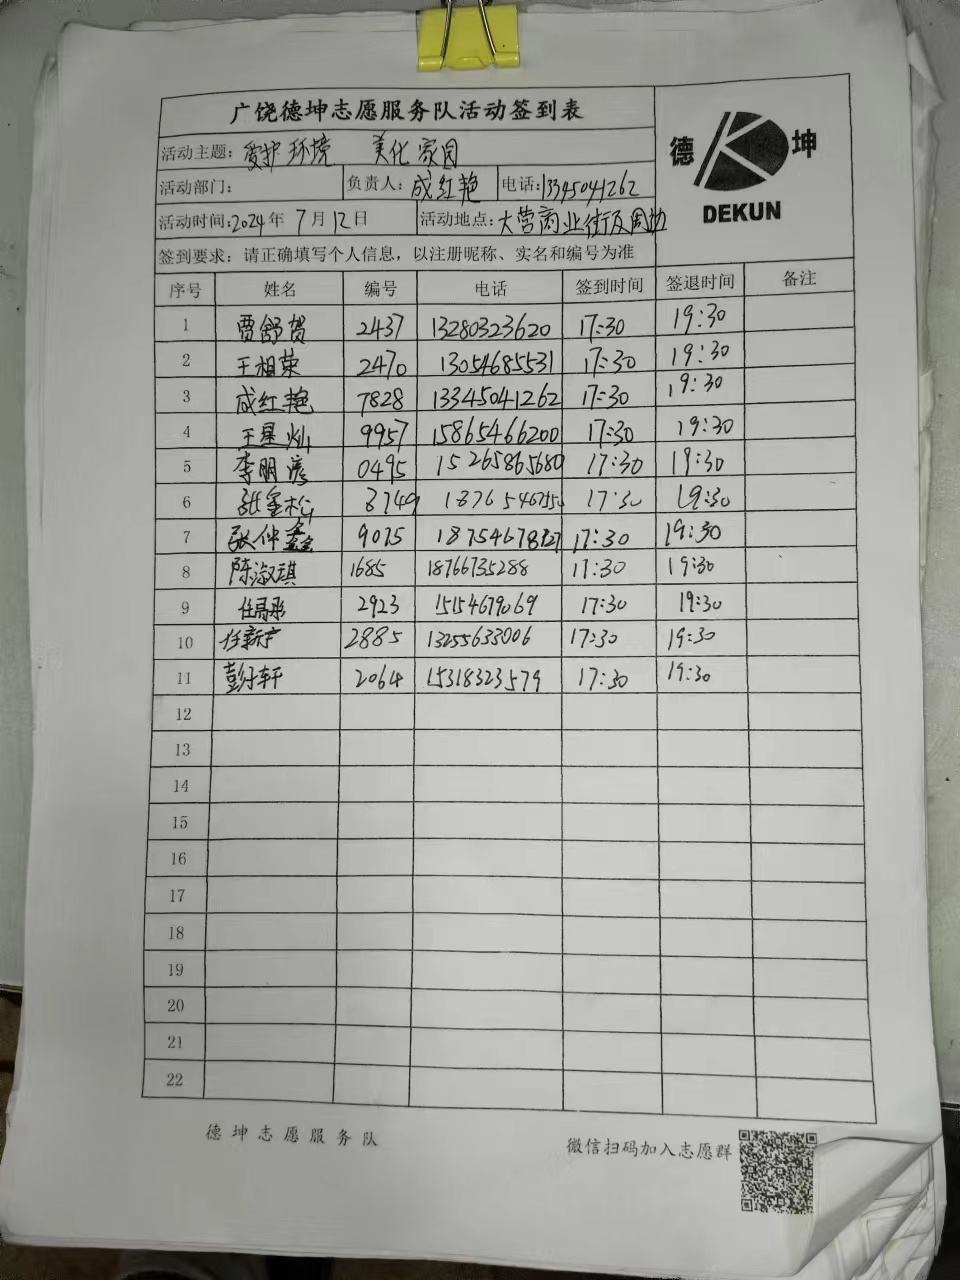 广饶德坤志愿服务队活动签到表
德 坤
DEKUN
活动主题: 爱护环境 美化家园
活动部门: 负责人: 成红艳 电话: 13345041262
活动时间: 2024年 7月12日 活动地点: 大营商业街及周边
签到要求: 请正确填写个人信息，以注册昵称、实名和编号为准
序号 姓名 编号 电话 签到时间 签退时间 备注
1 贾舒贺 2437 13280323620 17:30 19:30
2 王相荣 2470 13054685531 17:30 19:30
3 成红艳 7828 13345041262 17:30 19:30
4 王星灿 9957 15865466200 17:30 19:30
5 李明彦 0495 15265865680 17:30 19:30
6 张金松 8749 17:30 19:30
7 张仲鑫 9075 17:30 19:30
8 陈淑琪 1685 18766735288 17:30 19:30
9 2923 15154679069 17:30 19:30
10 任新产 2885 13255633006 17:30 19:30
11 彭子轩 2064 15318323579 17:30 19:30
12
13
14
15
16
17
18
19
20
21
22
德坤志愿服务队 微信扫码加入志愿群